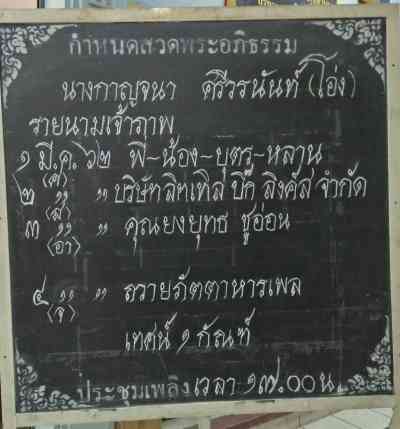 กำหนดสวดพระอภิธรรม
นางกาญจนา ศรีวรนันท์ (โอ่ง)
รายนามเจ้าภาพ
๑ มี.ค. ๖๒ พี่~น้อง~บุตร~หลาน
(ศ)
๒ " " บริษัทลิตเทิล บิ๊ก ลิงคัส จำกัด
(ส)
๓ " " คุณยงยุทธ ชูอ่อน
(อา)
๔ " " ถวายภัตตาหารเพล
(จ)
เทศน์ ๑ กัณฑ์
ประชุมเพลิง เวลา ๑๗.๐๐ น.